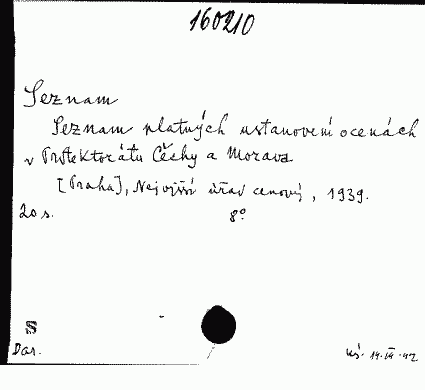 160210
Seznam
Seznam platných ustanovení o cenách
v Protektorátu Čechy a Morava
[Praha], Nejvyšší úřad cenový, 1939.
20 s. 8°
S
Dar.